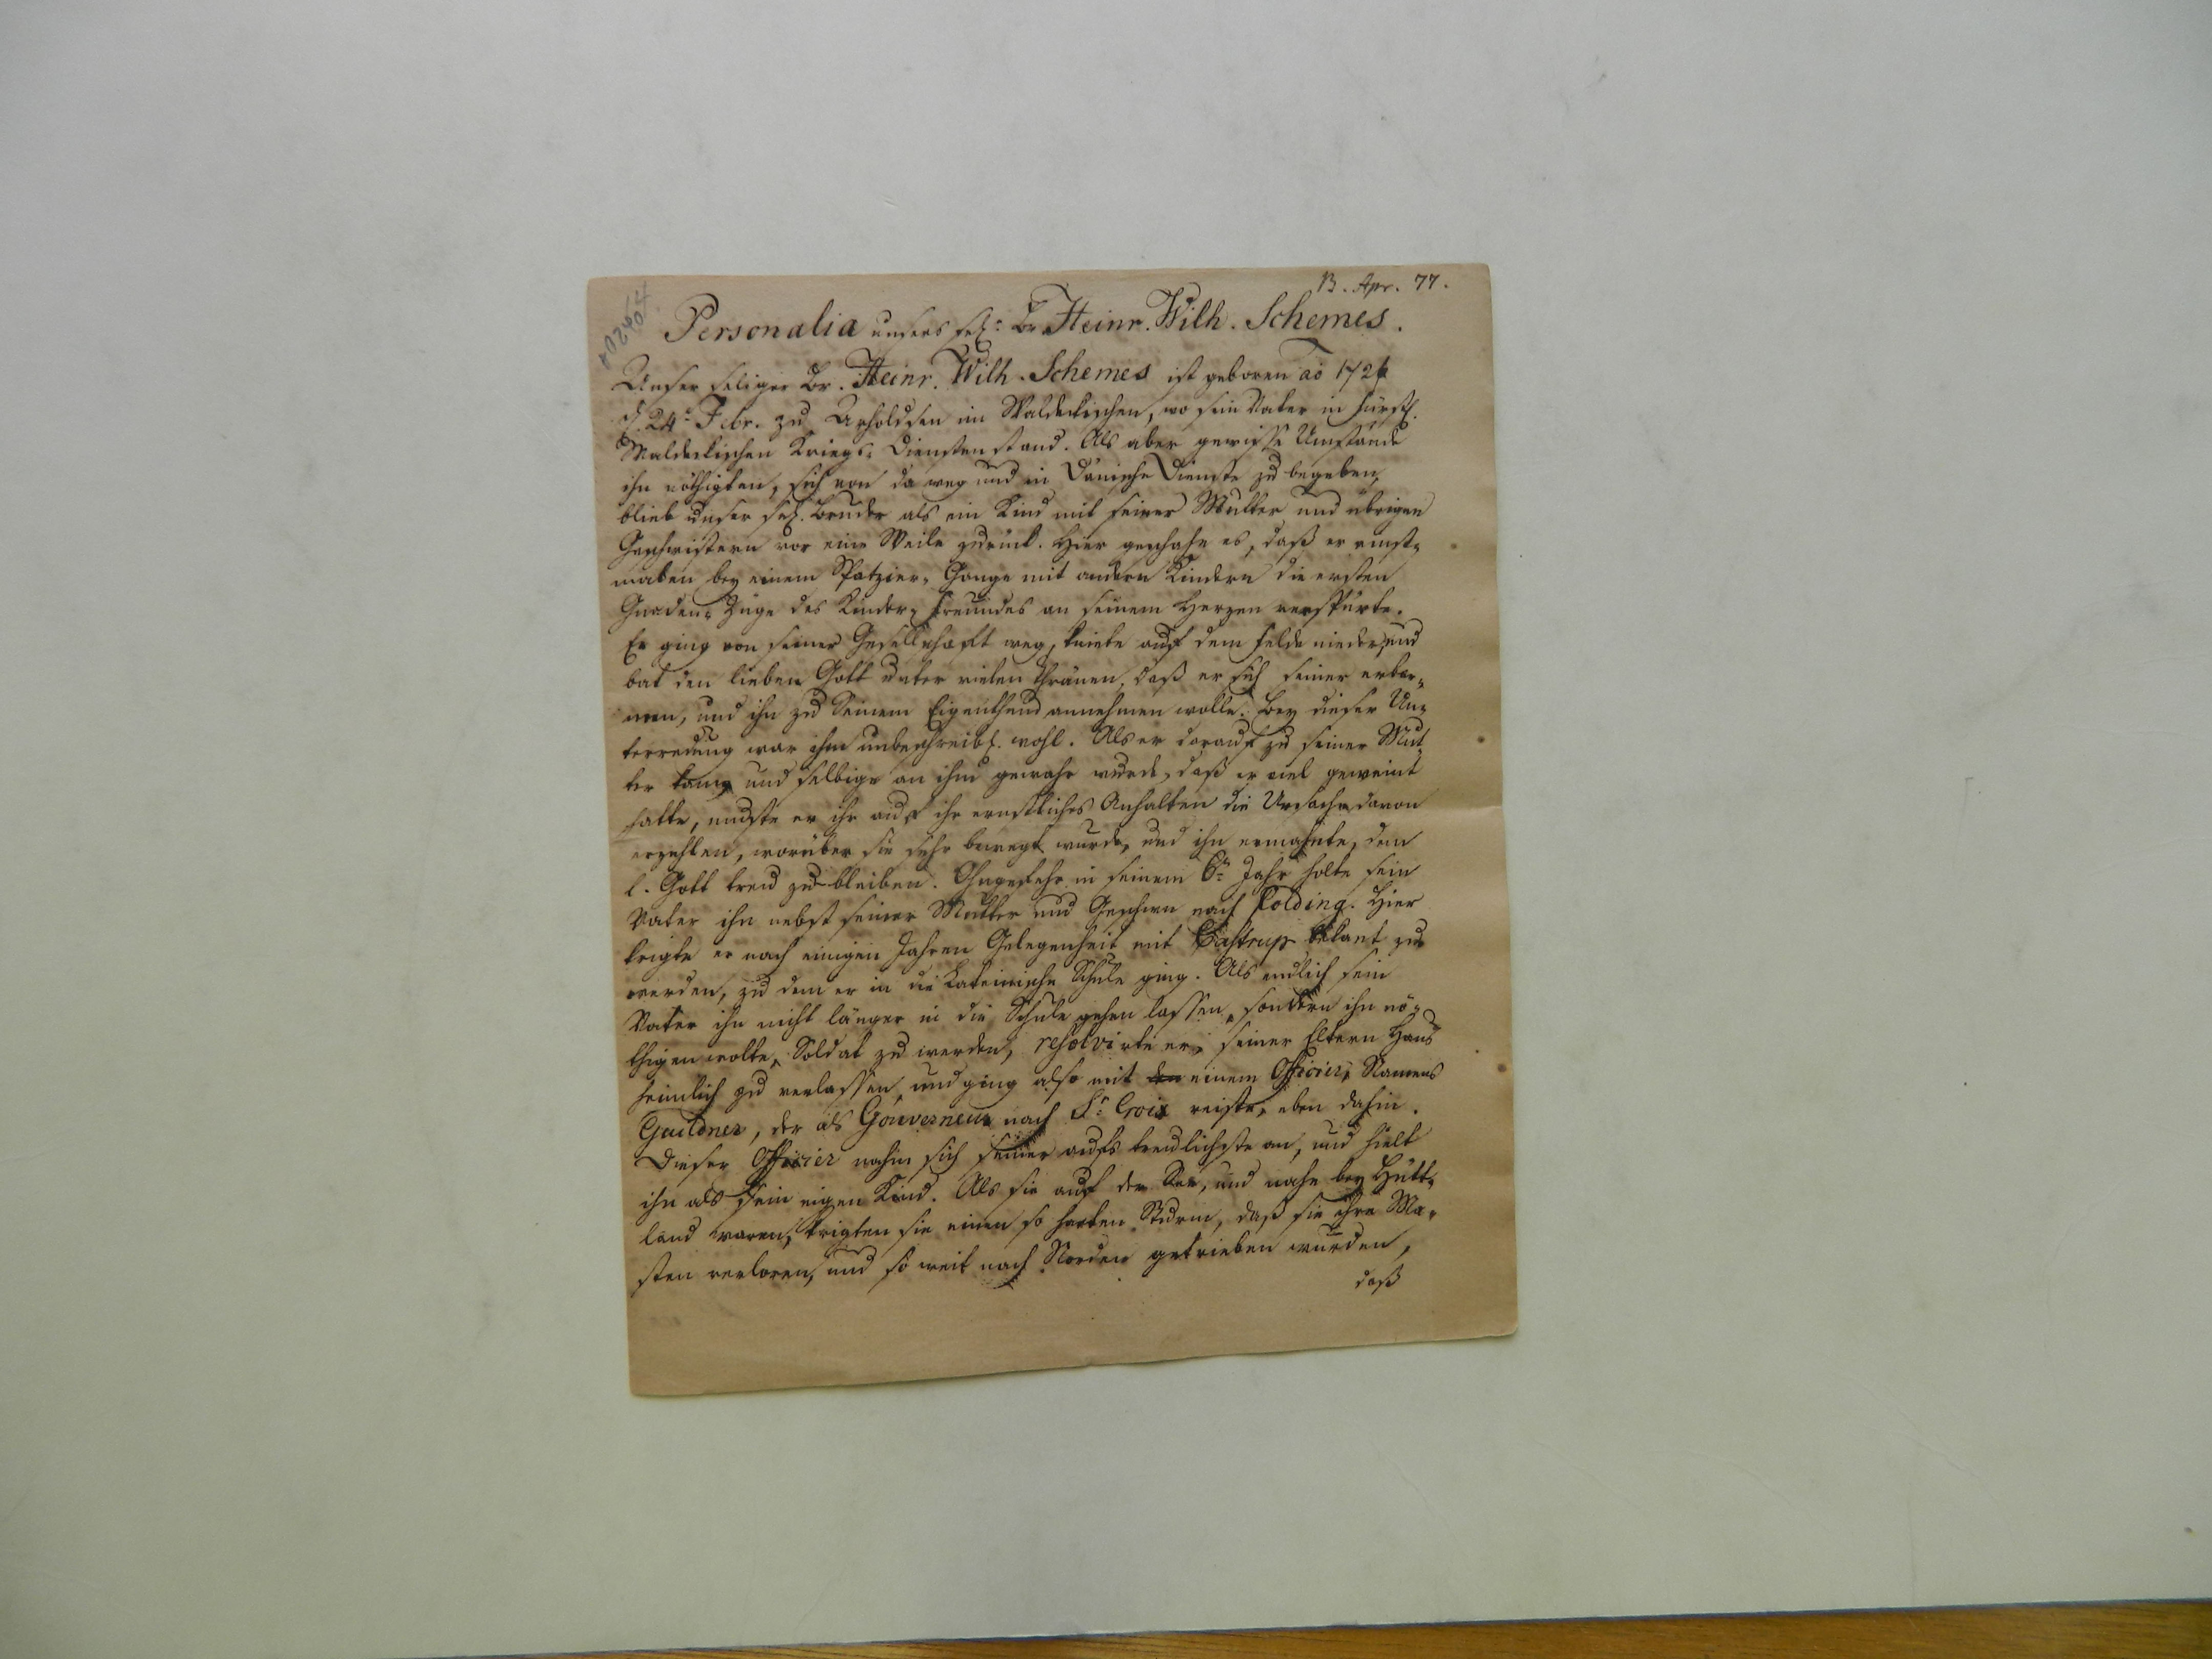 13. Apr. 77.
Personalia unsers sel: Br. Heinr. Wilh. Schemes.
Unser seliger Br. Heinr. Wilh. Schemes ist geboren ao 172
d. 24t Febr. zu Arholdsen im Waldekischen, wo sein Vater in fürstl.
Waldekischen Kriegs-Diensten stand. Als aber gewisse Umstände
ihn nöthigten, sich von da weg und in Dänische Dienste zu begeben,
blieb unser sel. Bruder als ein Kind mit seiner Mutter und übrigen
Geschwistern vor eine Weile zurück. Hier geschahe es, daß er einst-
malen bey einem Spatzier-Gange mit andern Kindern die ersten
Gnaden-Züge des Kinder-Freundes an seinem Herzen verspürte.
Er ging von seiner Gesellschaft weg, kniete auf dem Felde nieder, und
bat den lieben Gott unter vielen Thränen, daß er sich seiner erbar-
men, und ihn zu Seinem Eigenthum annehmen wolle. Bey dieser Un-
terredung war ihm unbeschreibl. wohl. Als er darauf zu seiner Mut-
ter kam, und selbige an ihm gewahr wurde, daß er viel geweint
hatte, muste er ihr auf ihr ernstliches Anhalten die Ursache davon
erzehlen, worüber sie sehr bewegt wurde, und ihn ermahnte, dem
l. Gott treu zu bleiben. Ohngefehr in seinem 6t Jahr holte sein
Vater ihn nebst seiner Mutter und Geschwn nach Colding. Hier
kriegte er nach einigen Jahren Gelegenheit mit Castrup bekant zu
werden, zu dem er in die Lateinische Schule ging. Als endlich sein
Vater ihn nicht länger in die Schule gehen lassen, sondern ihn nö-
thigen wolte, Soldat zu werden, resolvirte er, seiner Eltern Haus
heimlich zu verlassen, und ging also mit einem Officier, Namens
Guildner, der als Gouverneur nach St. Croix reiste, eben dahin.
Dieser Officier nahm sich seiner aufs treulichste an, und hielt
ihn als sein eigen Kind. Als sie auf der See, und nahe bey Hütt-
land waren, kriegten sie einen so harten Sturm, daß sie ihre Ma-
sten verloren, und so weit nach Norden getrieben wurden,
daß